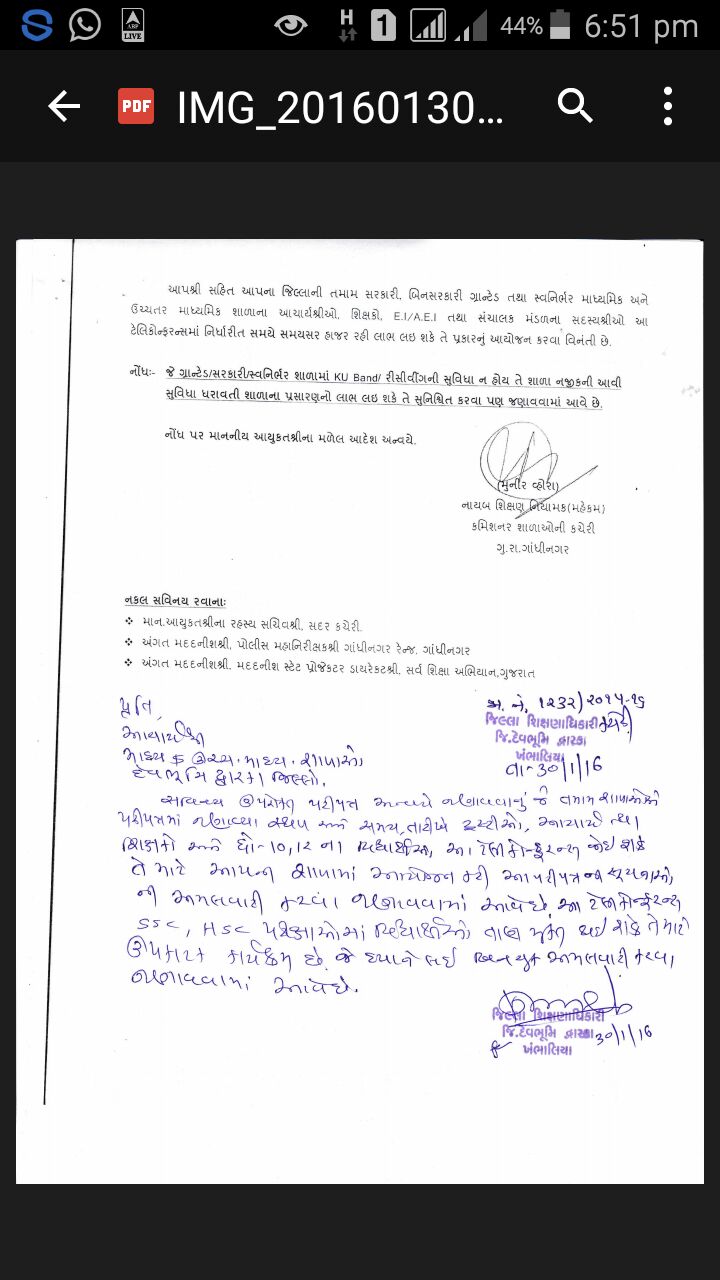 ABP
LIVE
H
1
44%
6:51 pm
PDF
IMG_20160130...
આપશ્રી સહિત આપના જિલ્લાની તમામ સરકારી, બિનસરકારી ગ્રાન્ટેડ તથા સ્વનિર્ભર માધ્યમિક અને
ઉચ્ચતર માધ્યમિક શાળાના આચાર્યશ્રીઓ, શિક્ષકો, E.I/A.E.I તથા સંચાલક મંડળના સદસ્યશ્રીઓ આ
ટેલિકોન્ફરન્સમાં નિર્ધારીત સમયે સમયસર હાજર રહી લાભ લઇ શકે તે પ્રકારનું આયોજન કરવા વિનંતી છે.
નોંધઃ- જે ગ્રાન્ટેડ/સરકારી/સ્વનિર્ભર શાળામાં KU Band/ રીસીવીંગની સુવિધા ન હોય તે શાળા નજીકની આવી
સુવિધા ધરાવતી શાળાના પ્રસારણનો લાભ લઇ શકે તે સુનિશ્ચિત કરવા પણ જણાવવામાં આવે છે.
નોંધ પર માનનીય આયુકતશ્રીના મળેલ આદેશ અન્વયે.
(મુનીર વ્હોરા)
નાયબ શિક્ષણ નિયામક(મહેકમ)
કમિશનર શાળાઓની કચેરી
ગુ.રા.ગાંધીનગર
નકલ સવિનય રવાનાઃ
❖ માન.આયુકતશ્રીના રહસ્ય સચિવશ્રી, સદર કચેરી.
❖ અંગત મદદનીશશ્રી, પોલીસ મહાનિરીક્ષકશ્રી ગાંધીનગર રેન્જ, ગાંધીનગર
❖ અંગત મદદનીશશ્રી, મદદનીશ સ્ટેટ પ્રોજેક્ટર ડાયરેકટશ્રી, સર્વ શિક્ષા અભિયાન,ગુજરાત
પ્રતિ,
આચાર્યશ્રી
માધ્ય ઉચ્ચ.માધ્ય.શાળાઓ,
દેવભૂમિ દ્વારકા જિલ્લો.
૧૨૩૨/૨૦૧૫-૧૬
જિલ્લા શિક્ષણાધિકારી કચેરી
જિ.દેવભૂમિ દ્વારકા
ખંભાલિયા
તા-30/1/16
સવિનય ઉપરોક્ત પરીપત્ર અન્વયે જણાવવાનું કે તમામ શાળાઓએ
પરીપત્રમાં જણાવ્યા સ્થળ અને સમય, તારીખે ટ્રસ્ટીઓ, આચાર્ય તથા
શિક્ષકો અને ધો-10,12 ના વિદ્યાર્થીઓ, આ ટેલીકોન્ફરન્સ જોઈ શકે
તે માટે આપની શાળામાં આયોજન કરી આ પરીપત્રની સૂચનાઓ,
ની અમલવારી કરવા જણાવવામાં આવે છે. આ ટેલીકોન્ફરન્સ
SSC, HSC પરીક્ષાઓમાં વિદ્યાર્થીઓ તાણ મુક્ત થઈ શકે તે માટે
ઉપકારક કાર્યક્રમ છે. જે ધ્યાને લઈ અમલવારી કરવા
જણાવવામાં આવે છે.
જિલ્લા શિક્ષણાધિકારી
જિ.દેવભૂમિ દ્વારકા 30/1/16
ખંભાલિયા